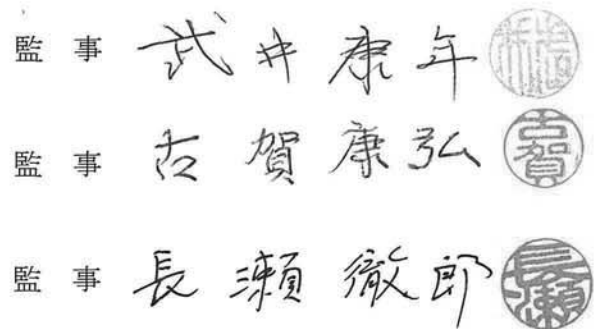 監 事 武 井 康 年
監 事 古 賀 康 弘 古賀
監 事 長 瀬 徹 郎 長瀬